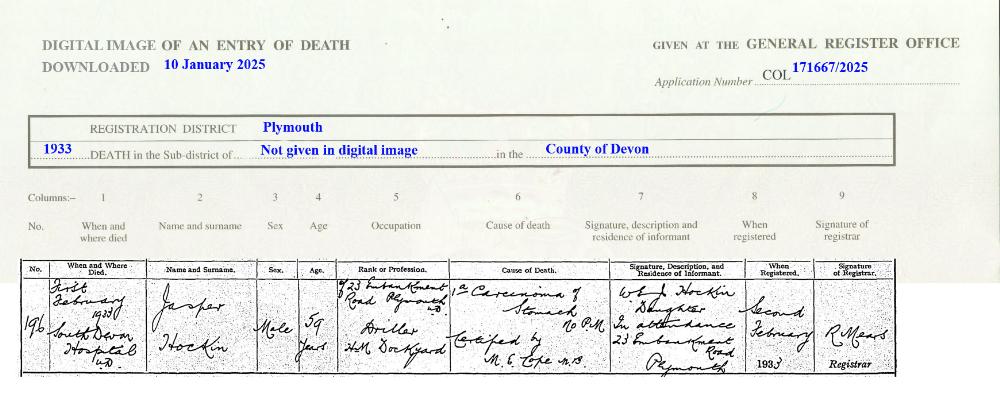 DIGITAL IMAGE OF AN ENTRY OF DEATH
DOWNLOADED 10 January 2025
GIVEN AT THE GENERAL REGISTER OFFICE
Application Number COL 171667/2025
REGISTRATION DISTRICT Plymouth
1933 DEATH in the Sub-district of Not given in digital image in the County of Devon
Columns:– 1 2 3 4 5 6 7 8 9
No. When and where died Name and surname Sex Age Occupation Cause of death Signature, description and residence of informant When registered Signature of registrar
No. When and Where Died. Name and Surname. Sex. Age. Rank or Profession. Cause of Death. Signature, Description, and Residence of Informant. When Registered. Signature of Registrar.
196
First
February
1933
South Devon
Hospital
U.D.
Jasper
Hockin
Male
59
years
of 23 Embankment
Road Plymouth
U.D.
Driller
H.M. Dockyard
1a Carcinoma of
Stomach
no P.M.
Certified by
M. E. Cope M.B.
Hockin
Daughter
In attendance
23 Embankment
Road
Plymouth
Second
February
1933
R Mears
Registrar